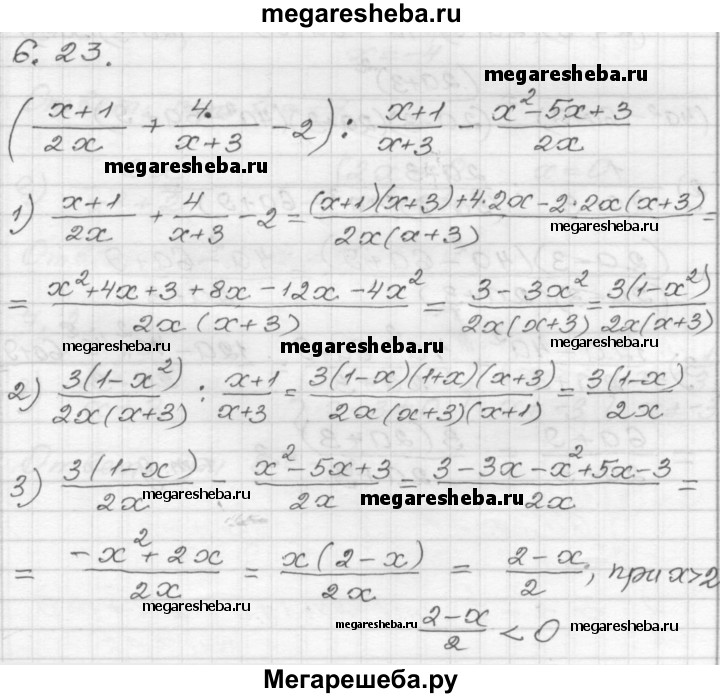 megaresheba.ru
6.23.
megaresheba.ru
((x+1)/(2x) + 4/(x+3) - 2) : (x+1)/(x+3) - (x²-5x+3)/(2x)
megaresheba.ru
1) (x+1)/(2x) + 4/(x+3) - 2 = ((x+1)(x+3)+4·2x-2·2x(x+3))/(2x(x+3)) =
megaresheba.ru
= (x²+4x+3+8x-12x-4x²)/(2x(x+3)) = (3-3x²)/(2x(x+3)) = 3(1-x²)/(2x(x+3))
megaresheba.ru megaresheba.ru megaresheba.ru
2) 3(1-x²)/(2x(x+3)) : (x+1)/(x+3) = 3(1-x)(1+x)(x+3)/(2x(x+3)(x+1)) = 3(1-x)/(2x)
megaresheba.ru
3) 3(1-x)/(2x) - (x²-5x+3)/(2x) = (3-3x-x²+5x-3)/(2x) =
megaresheba.ru megaresheba.ru megaresheba.ru
= (-x²+2x)/(2x) = x(2-x)/(2x) = (2-x)/2; при x>2
megaresheba.ru megaresheba.ru
(2-x)/2 < 0
megaresheba.ru megaresheba.ru
Мегарешеба.ру